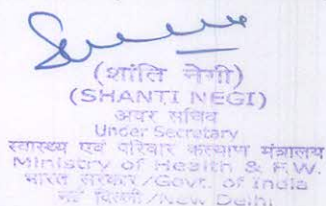 (शांति नेगी)
(SHANTI NEGI)
अवर सचिव
Under Secretary
स्वास्थ्य एवं परिवार कल्याण मंत्रालय
Ministry of Health & F.W.
भारत सरकार/Govt. of India
नई दिल्ली/New Delhi